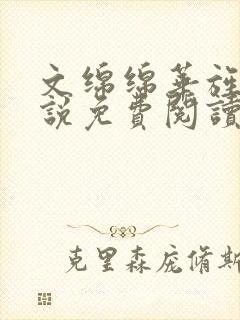 文绵绵华旌
說免費閱讀
克里森庞脩斯